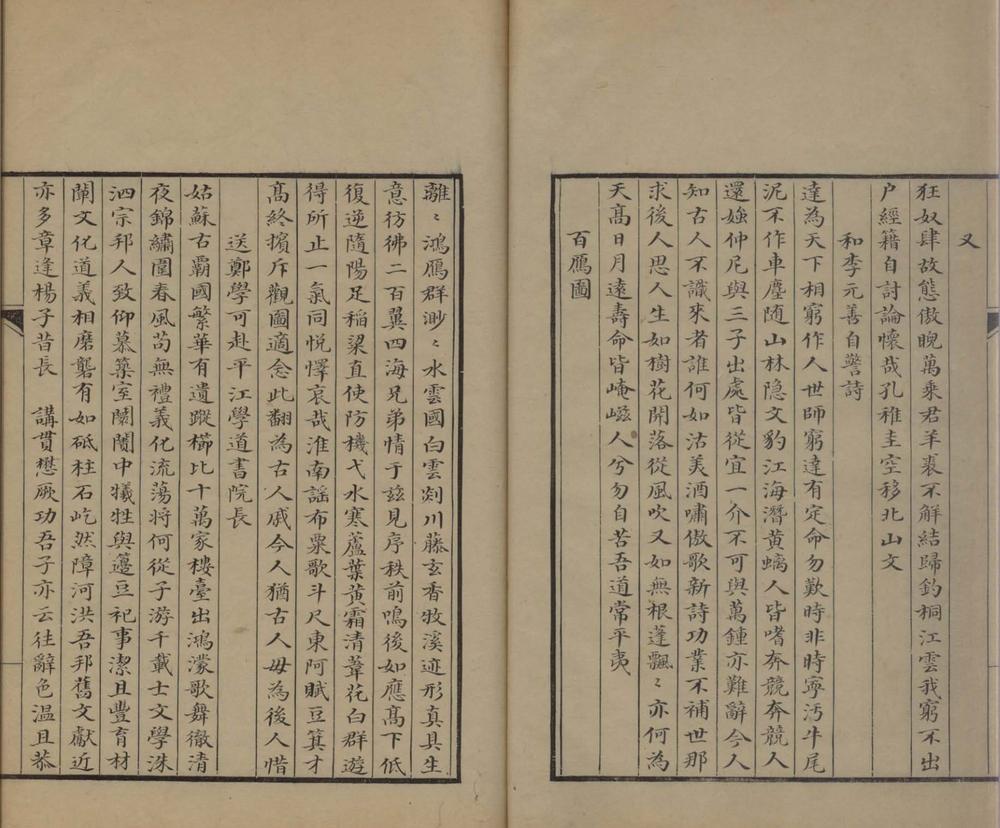 又
狂奴肆故態傲睨萬乘君羊裘不解結歸釣桐江雲我窮不出
户經籍自討論懷哉孔稚圭空移北山文
和李元善自警詩
達為天下相窮作人世師窮達有定命勿歎時非時寧汚牛尾
泥不作車塵随山林隐文豹江海潛黄螭人皆嗜奔競奔競人
還媸仲尼與三子出處皆從宜一介不可與萬鍾亦難辭今人
知古人不識來者誰何如沽美酒嘯傲歌新詩功業不補世那
求後人思人生如樹花開落從風吹又如無根蓬飄〻亦何為
天髙日月遠壽命皆崦嵫人兮勿自苦吾道常平夷
百鴈圖
離〻鴻鴈群渺〻水雲國白雲剡川藤玄香牧溪迹形真具生
意彷彿二百翼四海兄弟情于兹見序秩前鳴後如應髙下低
復逆隨陽足稲粱直使防機弋水寒蘆葉黄霜清葦花白群遊
得所止一氣同悦懌哀哉淮南謡布粟歌斗尺東阿賦豆箕才
髙終擯斥觀圖適念此翻為古人戚今人猶古人毋為後人惜
送鄭學可赴平江學道書院長
姑蘇古霸國繁華有遺蹤櫛比十萬家樓臺出鴻濛歌舞徹清
夜錦繡圍春風苟無禮義化流蕩将何從子游千載士文學洙
泗宗邦人致仰慕築室闤闠中犧牲與籩豆祀事潔且豐育材
闡文化道義相磨礱有如砥柱石屹然障河洪吾邦舊文獻近
亦多章逢楊子昔長　講貫懋厥功吾子亦云往辭色温且恭